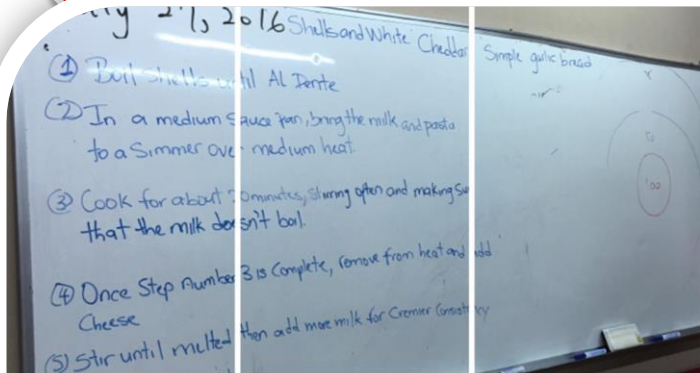 27, 2016 Shells and White Cheddar Simple garlic bread
① Boil shells until Al Dente
② In a medium Sauce pan, bring the milk and pasta
to a Simmer over medium heat.
③ Cook for about 20 minutes, stirring often and making sure
that the milk doesn't boil.
④ Once Step number 3 is Complete, remove from heat and add
Cheese
⑤ Stir until melted then add more milk for Cremier Consistency
100